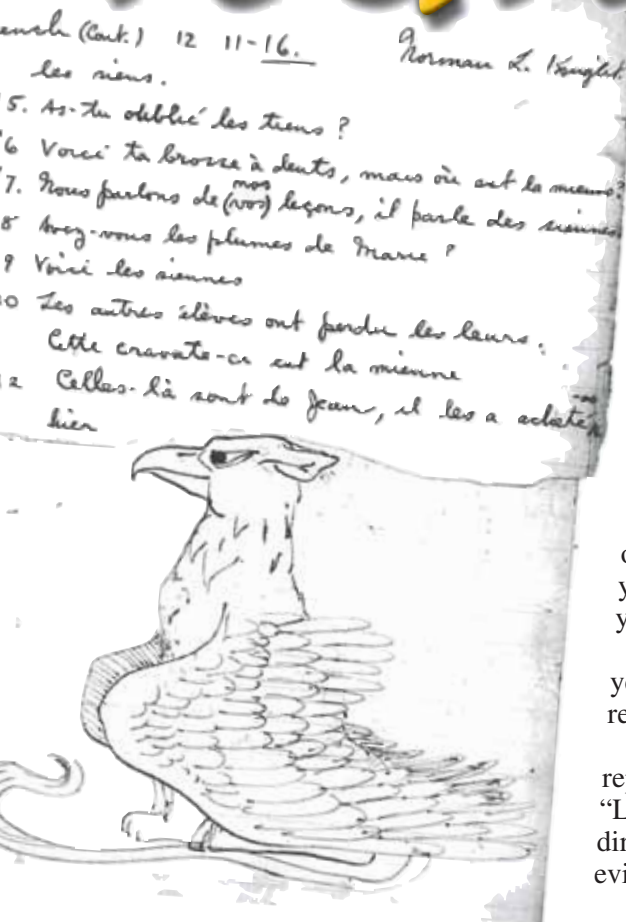 (Cont.) 12 11-16. Norman L. Knight.
les siens.
5. As-tu oublié les tiens ?
6 Voici ta brosse à dents, mais où est la mienne?
nos
7. Nous parlons de (vos) leçons, il parle des siennes
8 Avez-vous les plumes de Marie ?
9 Voici les siennes
10 Les autres élèves ont perdu les leurs.
Cette cravate-ci est la mienne
12 Celles-là sont de Jean, il les a achetés
hier
y
y
re
“L
dir
evi